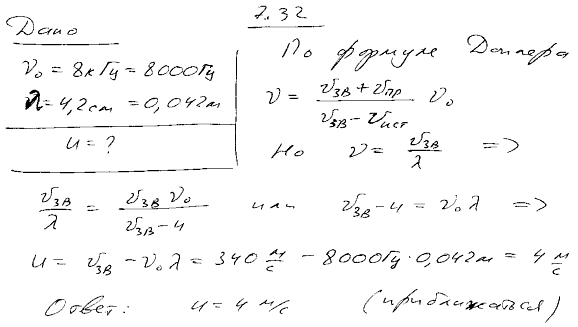 7.32
Дано
ν₀ = 8кГц = 8000Гц
λ = 4,2см = 0,042м
u = ?
По формуле Доплера
ν = (v_зв + v_пр)/(v_зв - v_ист) ν₀
Но ν = v_зв/λ =>
v_зв/λ = v_зв ν₀/(v_зв - u) или v_зв - u = ν₀ λ =>
u = v_зв - ν₀ λ = 340 м/с - 8000Гц · 0,042м = 4 м/с
Ответ: u = 4 м/с (приближаться)